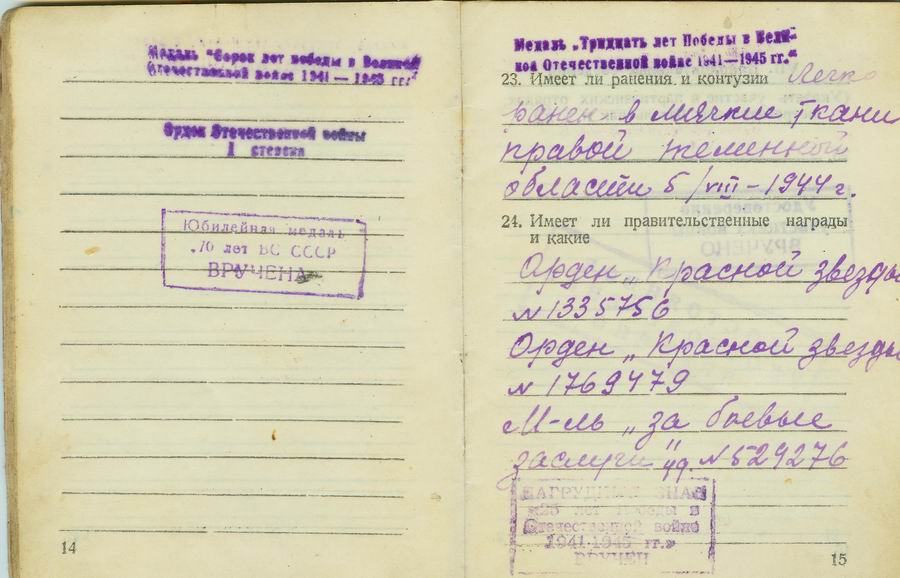 Медаль "Сорок лет победы в Великой
Отечественной войне 1941—1945 гг."
Орден Отечественной войны
I степени
Юбилейная медаль
„70 лет ВС СССР
ВРУЧЕНА
14
Медаль „Тридцать лет Победы в Вели-
кой Отечественной войне 1941—1945 гг."
23. Имеет ли ранения и контузии Легко
ранен в мягкие ткани
правой теменной
области 5/VIII-1944 г.
24. Имеет ли правительственные награды
и какие
Орден „Красной звезды
№ 1335756
Орден „Красной звезды
№ 1769479
М-ль „за боевые
заслуги" уд. № 529276
НАГРУДНЫЙ ЗНАК
«25 лет Победы в
Отечественной войне
1941-1945 гг.»
ВРУЧЕН
Удостоверение
ВРУЧЕНО
15